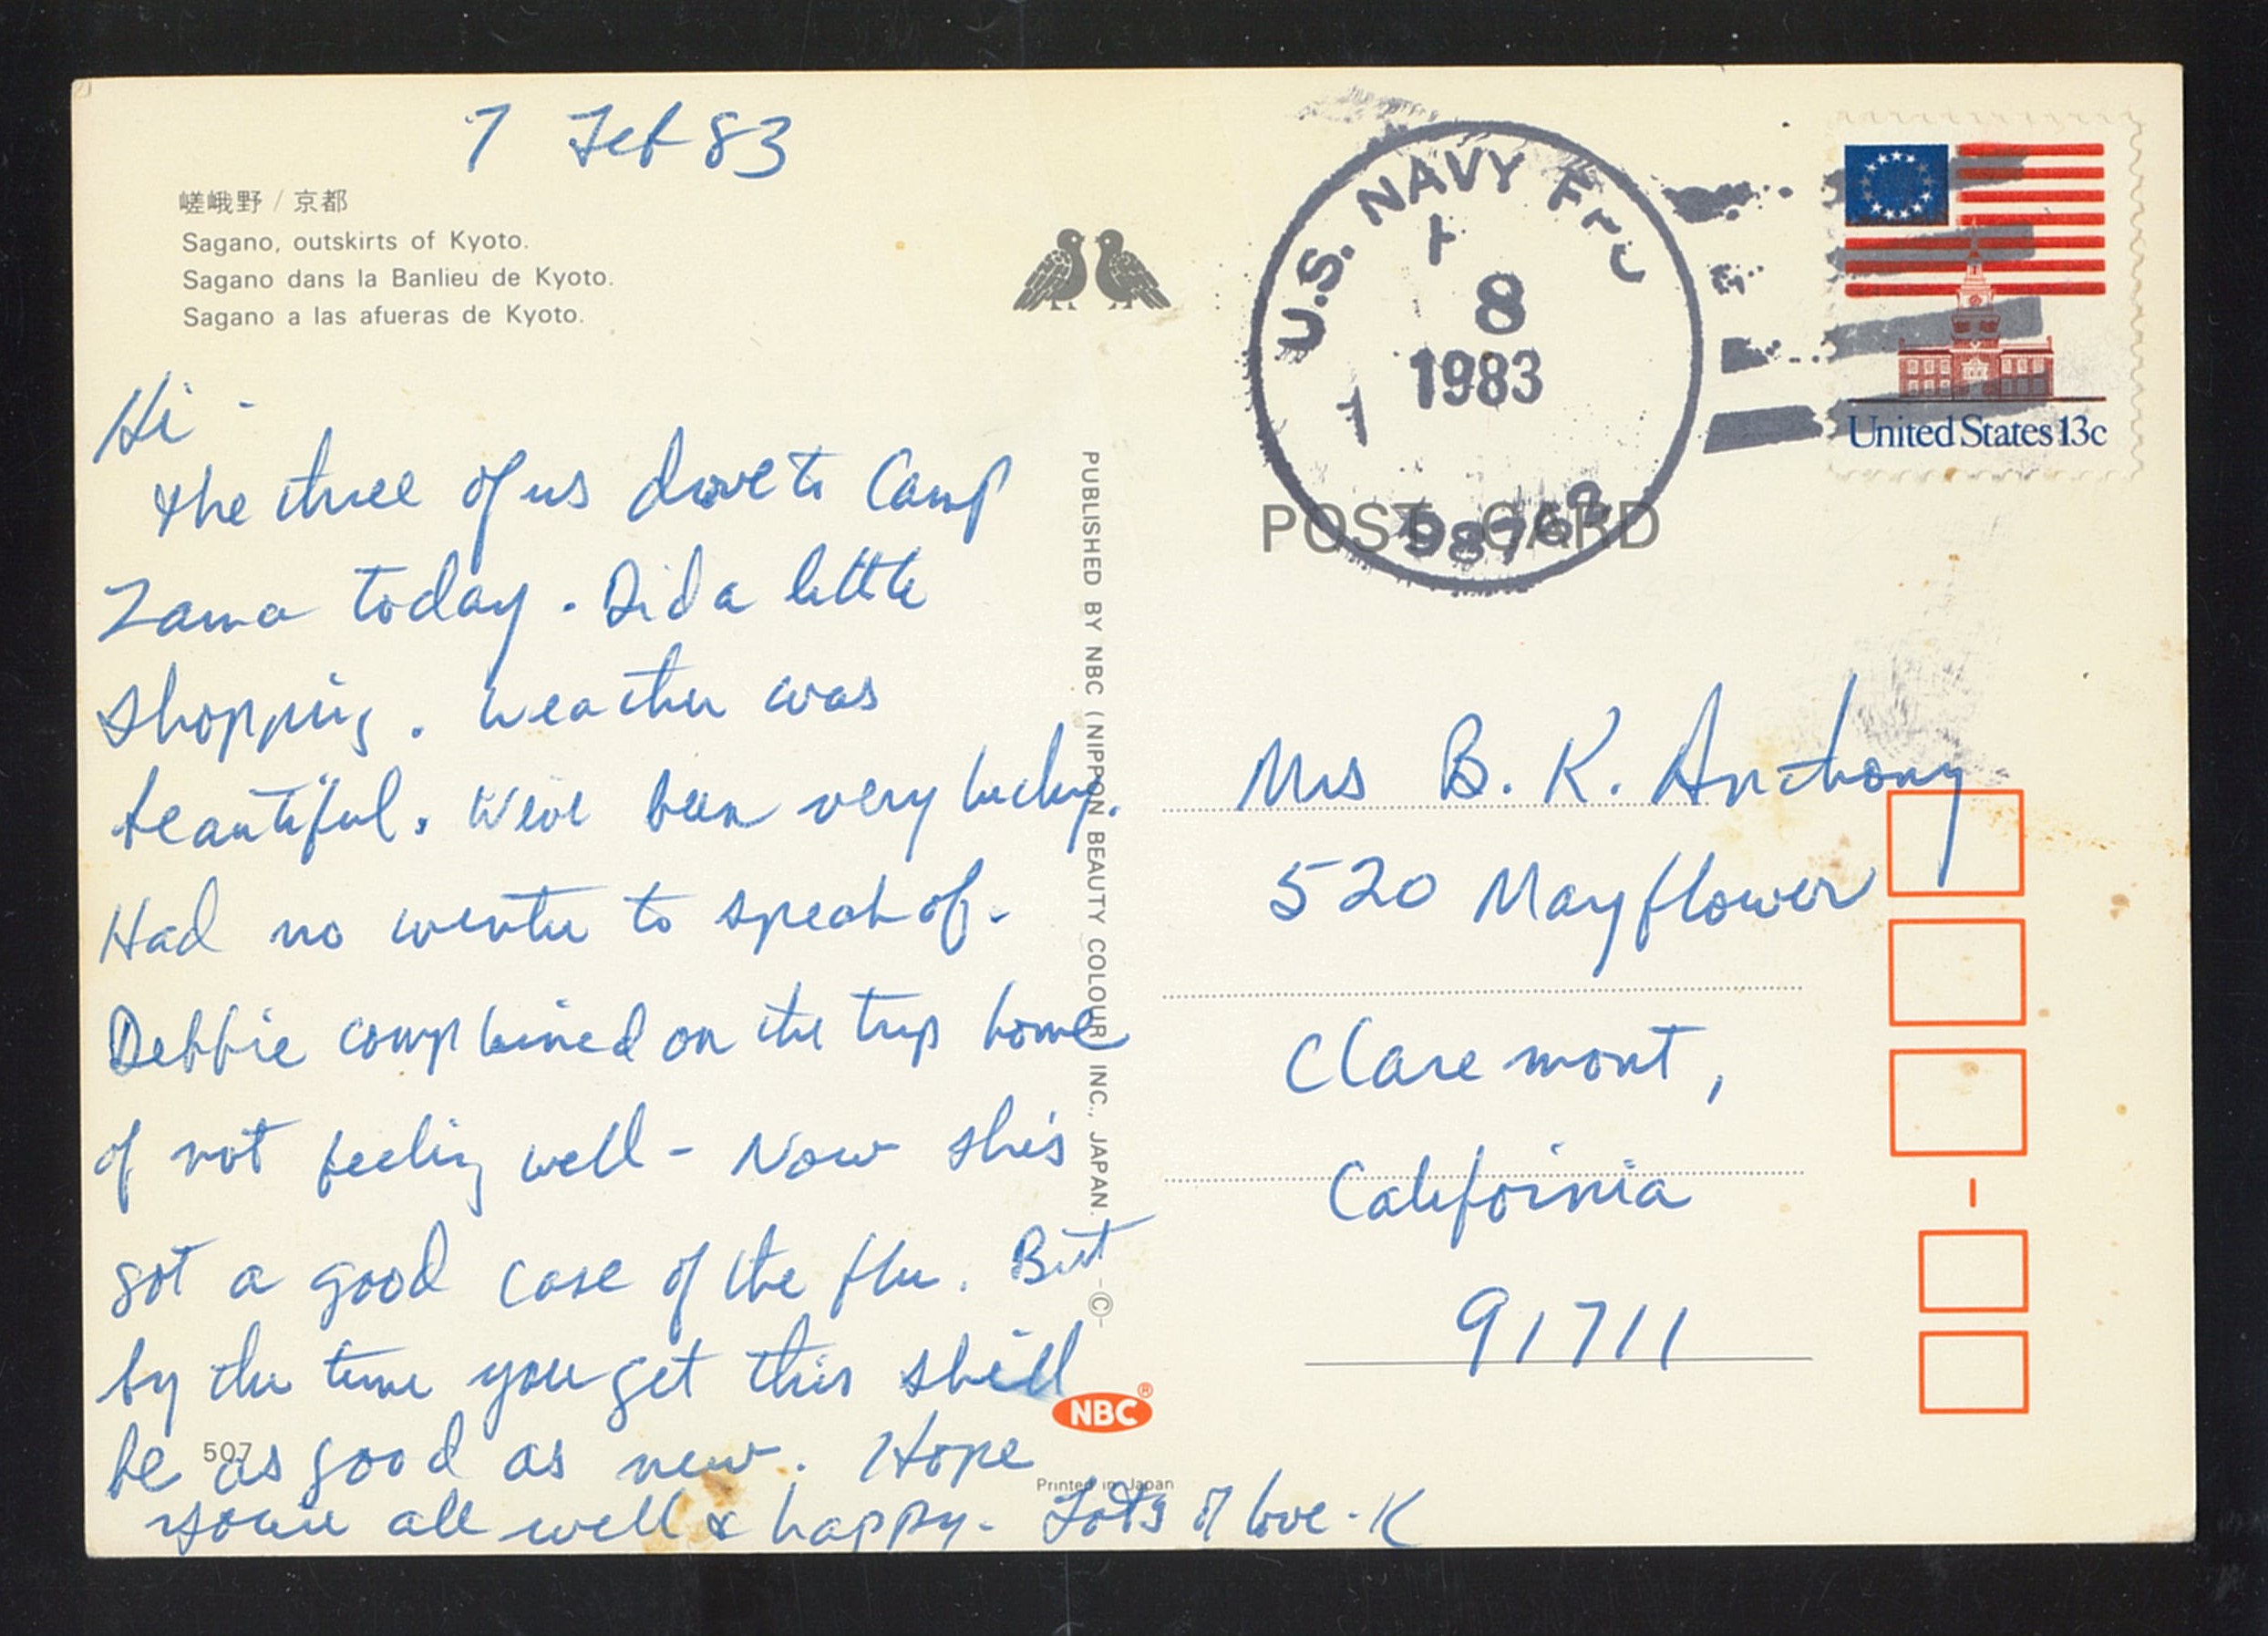 7 Feb 83
嵯峨野 / 京都
Sagano, outskirts of Kyoto.
Sagano dans la Banlieu de Kyoto.
Sagano a las afueras de Kyoto.
Hi -
the three of us drove to Camp
Zama today. Did a little
shopping. Weather was
beautiful. We've been very lucky.
Had no winter to speak of.
Debbie complained on the trip home
of not feeling well - Now she's
got a good case of the flu. But
by the time you get this she'll
be as good as new. Hope
you're all well & happy. Lots of love - K
507
PUBLISHED BY NBC (NIPPON BEAUTY COLOUR INC., JAPAN. -©-
NBC®
Printed in Japan
U.S. NAVY
8
1983
98762
United States 13c
POST CARD
Mrs B. K. Anthony
520 Mayflower
Claremont,
California
91711